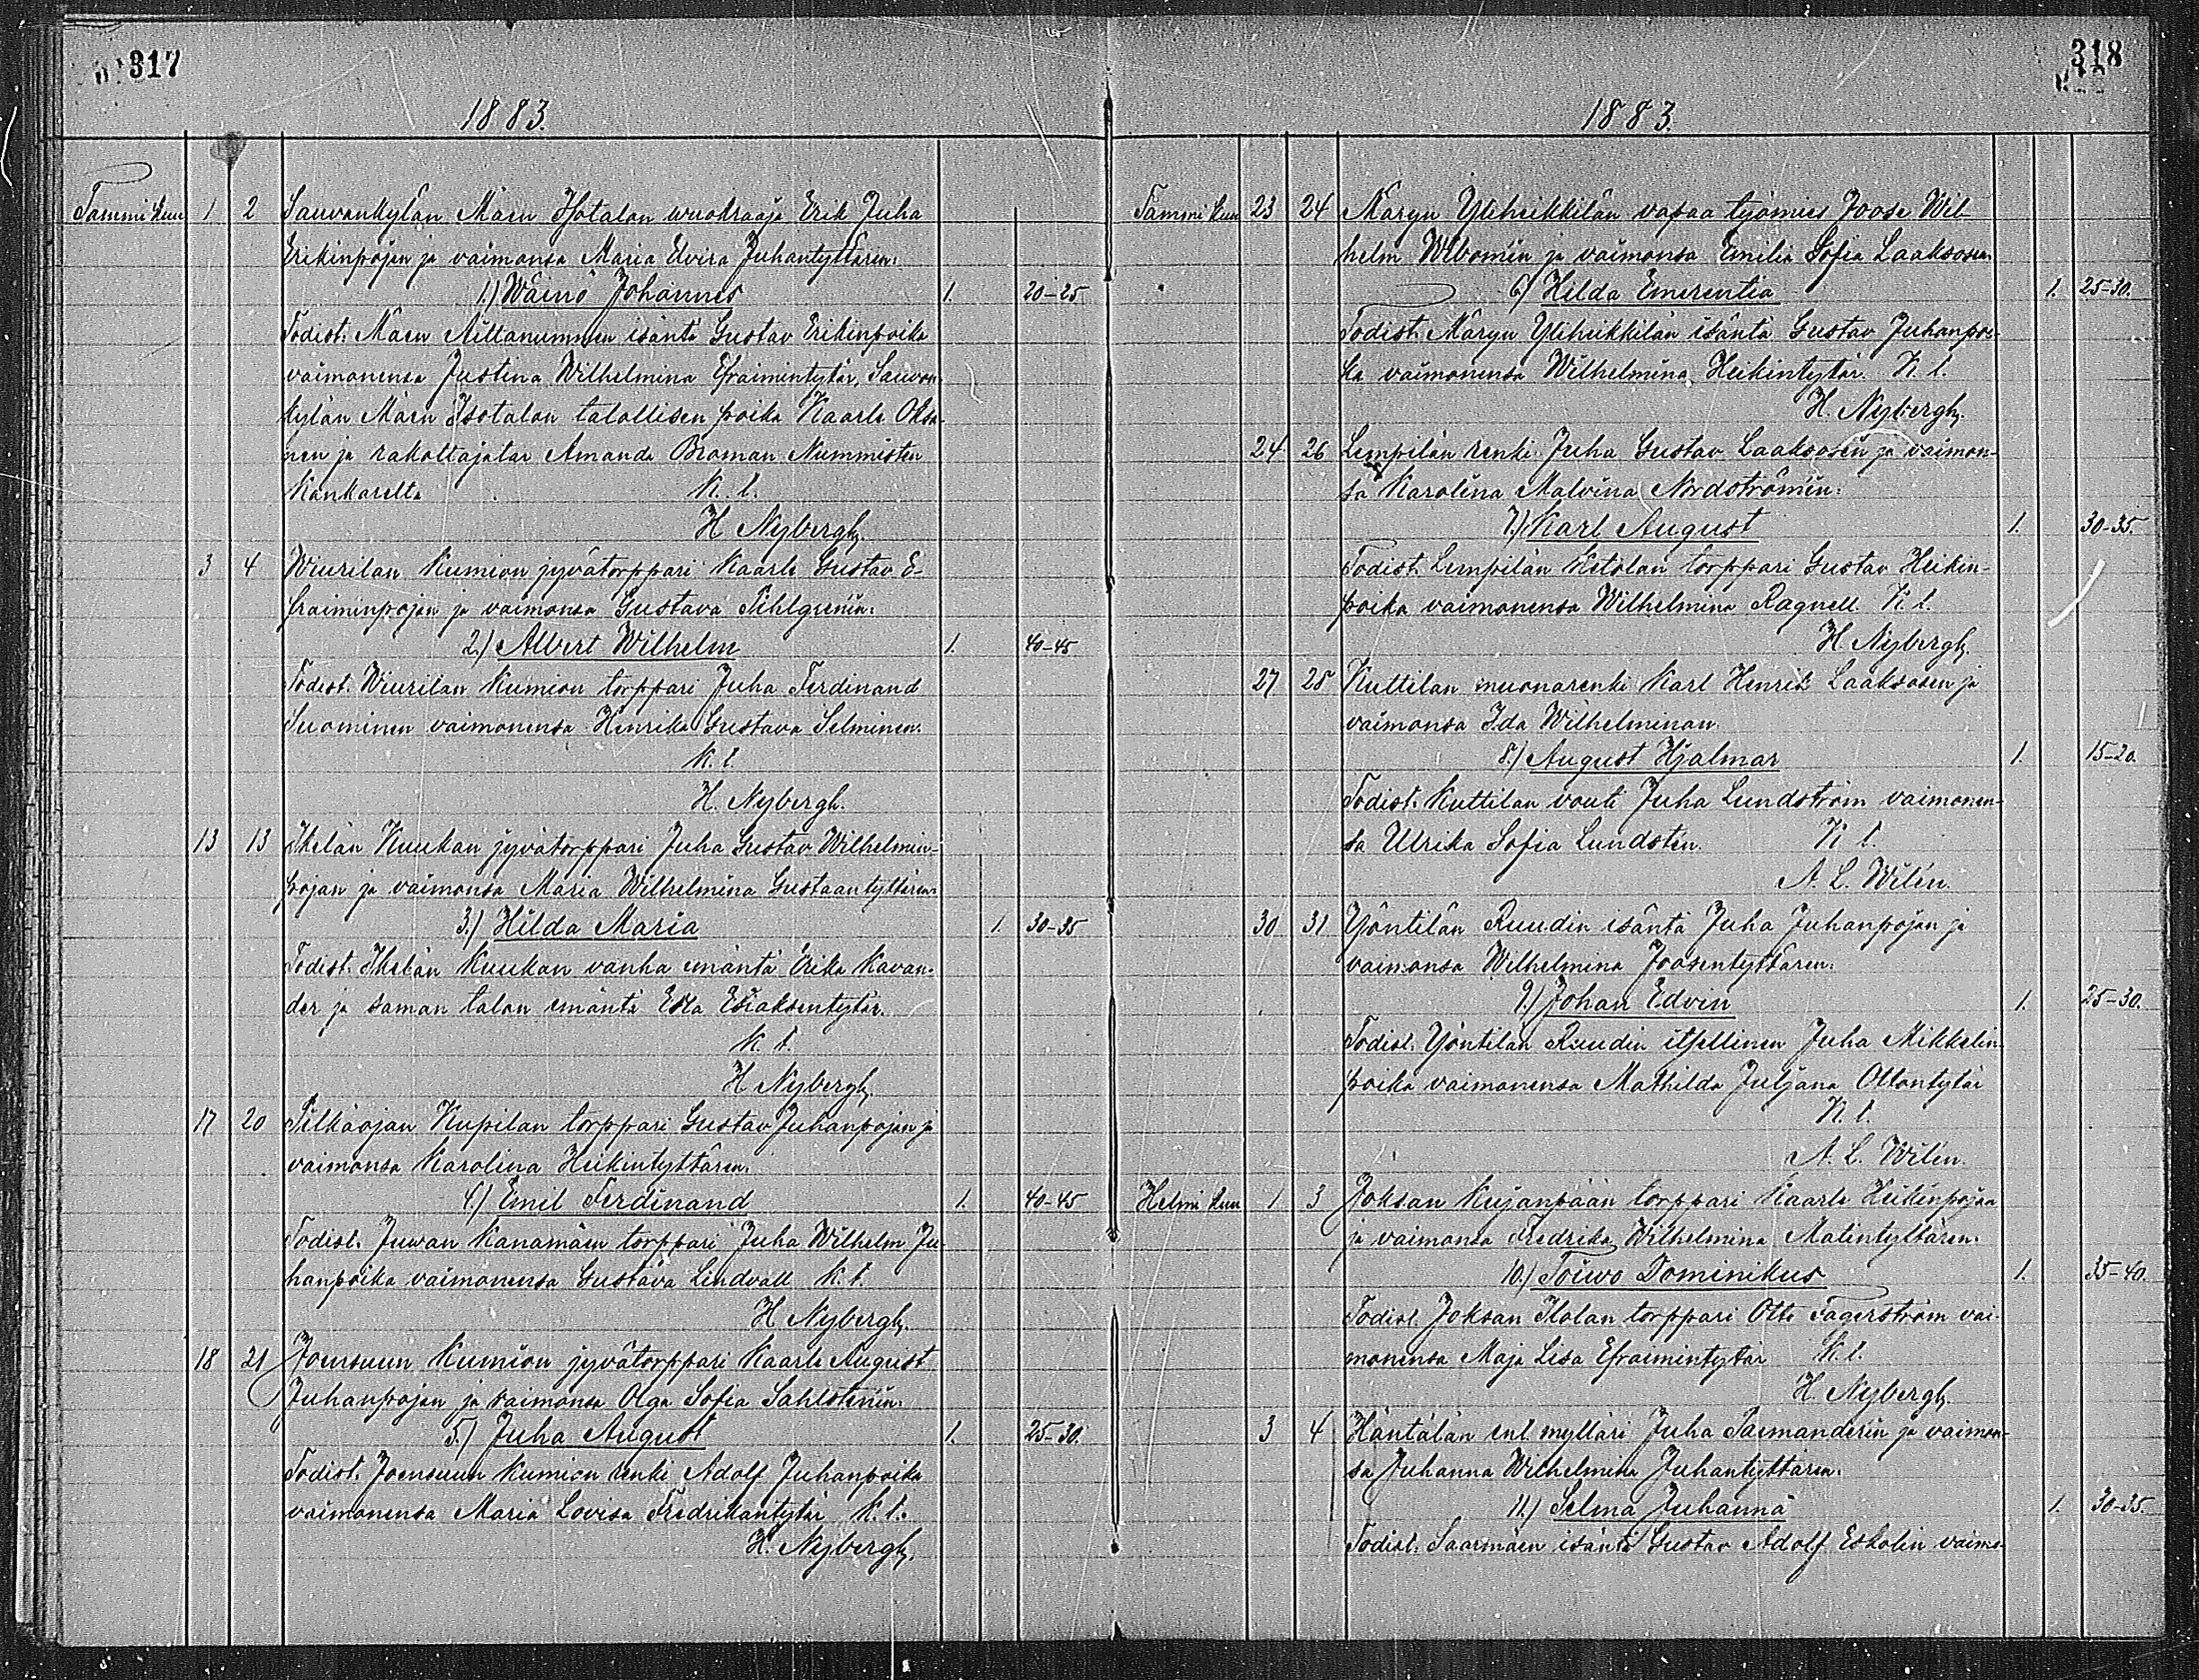 317
1883.
Tammi kuu 1 2 Sauvonkylän Mäen Isotalon wuokraaja Erik Juha
Erikinpojan ja vaimonsa Maria Elvira Juhantyttären:
1.) Wäinö Johannes 1. 20-25
Todist. Mäen Aittanummen isäntä Gustav Erikinpoika
vaimonensa Justina Wilhelmina Efraimintytär, Sauvon-
kylän Mäen Isotalon talollisen poika Kaarle Oksa-
nen ja rakottajatar Amanda Broman Nummisten
Kankareelta K. t.
H Nybergh.
3 4 Wiurilan Kumion jyvätorppari Kaarle Gustav E-
fraiminpojan ja vaimonsa Gustava Sihlgrenin:
2.) Albert Wilhelm 1. 40-45
Todist. Wiurilan Kumion torppari Juha Ferdinand
Suominen vaimonensa Henrika Gustava Selminen.
K. t.
H. Nybergh.
13 13 Ihelän Kuukan jyvätorppari Juha Gustav Wilhelmin-
pojan ja vaimonsa Maria Wilhelmina Gustaantyttären:
3.) Hilda Maria 1. 30-35
Todist. Ihelän Kuukan vanha emäntä Erika Kavan-
der ja saman talon emäntä Eva Esaiaksentytär.
K. t.
H Nybergh.
17 20 Pilkäojan Kupilan torppari Gustav Juhanpojan ja
vaimonsa Karolina Heikintyttären.
4.) Emil Ferdinand 1. 40-45
Todist. Juwan Kanamäen torppari Juha Wilhelm Ju-
hanpoika vaimonensa Gustava Lindvall K. t.
H Nybergh.
18 21 Joensuun Kumion jyvätorppari Kaarle August
Juhanpojan ja vaimonsa Olga Sofia Sahlstenin:
5.) Juha August 1. 25-30.
Todist. Joensuun Kumion renki Adolf Juhanpoika
vaimonensa Maria Lovisa Fredrikantytär K. t.
H. Nybergh.
318
1883.
Tammi kuu 23 24 Märyn Yliheikkilän vapaa työmies Joose Wil-
helm Wibomin ja vaimonsa Emilia Sofia Laaksosen
6.) Hilda Emerentia 1. 25-30.
Todist. Märyn Yliheikkilän isäntä Gustav Juhanpoi-
ka vaimonensa Wilhelmina Heikintytär. K. t.
H. Nybergh.
24 26 Lempilän renki Juha Gustav Laaksosen ja vaimon-
sa Karolina Malvina Nordströmin:
7.) Karl August 1. 30-35.
Todist. Lempilän Ketolan torppari Gustav Heikin-
poika vaimonensa Wilhelmina Ragnell. K. t.
H Nybergh.
27 28 Kuttilan muonarenki Karl Henrik Laaksosen ja
vaimonsa Ida Wilhelminan
8.) August Hjalmar 1. 15-20.
Todist. Kuttilan vouti Juha Lundström vaimonen-
sa Ulrika Sofia Lundsten. K. t.
A. L. Wilén.
30 31 Yöntilän Ruudin isäntä Juha Juhanpojan ja
vaimonsa Wilhelmina Joosentyttären.
9.) Johan Edvin 1. 25-30.
Todist. Yöntilän Ruudin itsellinen Juha Mikkelin-
poika vaimonensa Mathilda Juljana Ottontytär
K. t.
A. L. Wilén.
Helmi kuu 1 3 Joksan Kujanpään torppari Kaarle Heikinpojan
ja vaimonsa Fredrika Wilhelmina Matintyttären.
10.) Toiwo Dominikus 1. 35-40.
Todist. Joksan Ilolan torppari Otto Fagerström vai-
monensa Maja Lisa Efraimintytär K. t.
H Nybergh.
3 4 Häntälän ent. mylläri Juha Parmanderin ja vaimon-
sa Juhanna Wilhelmina Juhantyttären.
11.) Selma Juhanna 1. 30-35.
Todist. Saarmäen isäntä Gustav Adolf Eskolin vaimo-